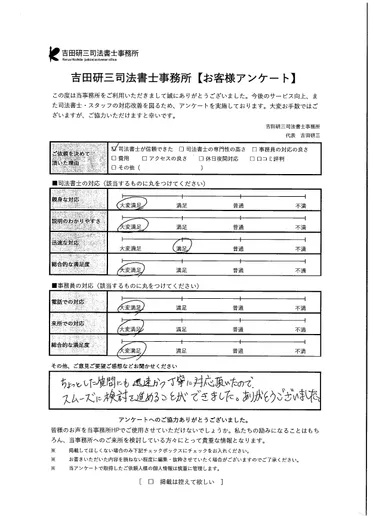 吉田研三司法書士事務所
吉田研三司法書士事務所【お客様アンケート】
この度は当事務所をご利用いただきまして誠にありがとうございました。今後のサービス向上、ま
た司法書士・スタッフの対応改善を図るため、アンケートを実施しております。大変お手数ではご
ざいますが、ご協力いただけますと幸いです。
吉田研三司法書士事務所
代表 吉田研三
ご依頼を決めて
頂いた理由
☑ 司法書士が信頼できた □ 司法書士の専門性の高さ □ 事務員の対応の良さ
□ 費用 □ アクセスの良さ □ 休日夜間対応 □ 口コミ評判
□ その他（ ）
■司法書士の対応（該当するものに丸をつけてください）
親身な対応
大変満足 満足 普通 不満
説明のわかりやすさ
大変満足 満足 普通 不満
迅速な対応
大変満足 満足 普通 不満
総合的な満足度
大変満足 満足 普通 不満
■事務員の対応（該当するものに丸をつけてください）
電話での対応
大変満足 満足 普通 不満
来所での対応
大変満足 満足 普通 不満
総合的な満足度
大変満足 満足 普通 不満
その他、ご意見ご要望ご感想などお聞かせください
ちょっとした質問にも迅速かつ丁寧に対応頂いたので、
スムーズに検討を進めることができました。ありがとうございました。
アンケートへのご協力ありがとうございました。
皆様のお声を当事務所HPでご使用させていただけないでしょうか。私たちの励みになることはもち
ろん、当事務所へのご来所を検討している方々にとって貴重な情報となります。
※ 掲載してほしくない場合のみ下記チェックボックスにチェックをお入れください。
※ お書きいただいた内容を損ねない程度に編集・抜粋させていただく場合がございますのでご了承ください。
※ 当アンケートで取得したご依頼人様の個人情報は慎重に管理します。
[ □ 掲載は控えて欲しい ]